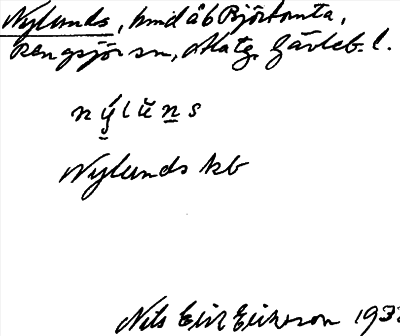 Nylunds, hmd å b Björktomta,
Rengsjö sn, Gävleb. l.
nýlŭns
Nylunds kb
Nils Eric Ericsson 193